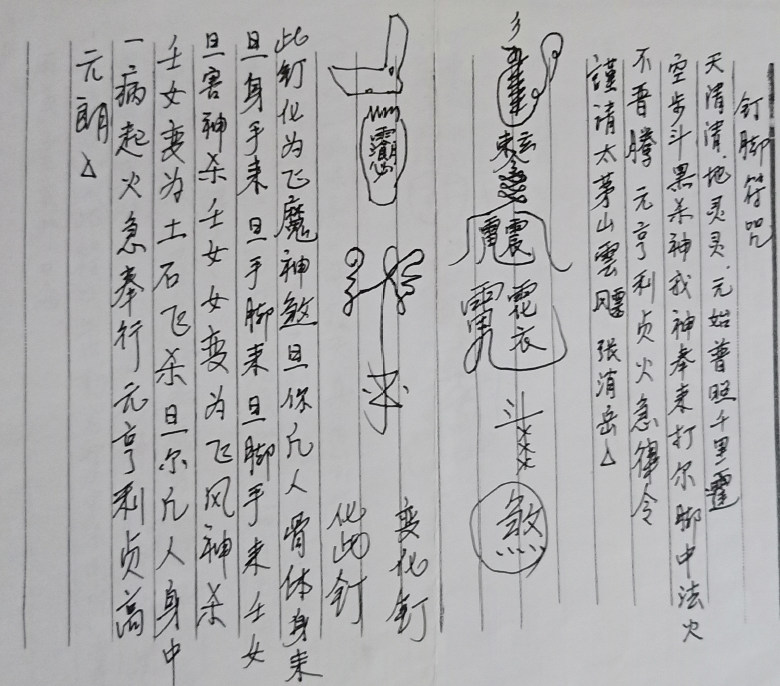 钉脚符咒
天清清.地灵灵.元始普旺千里
空步斗黑杀神我神奉来打尔脚中法火
不吾腾 元亨利贞火急律令
謹请太茅山雲 張消岳
東 玄
雷震
衣
斗
煞
变化钉
化此钉
此钉化为飞魔神煞旦你凡人骨体身来
旦身手来旦手脚来旦脚手来壬女
旦害神杀壬女女变为飞风神杀
壬女变为土石飞杀旦尔凡人身中
一病起火急奉行元亨利贞高
元朗